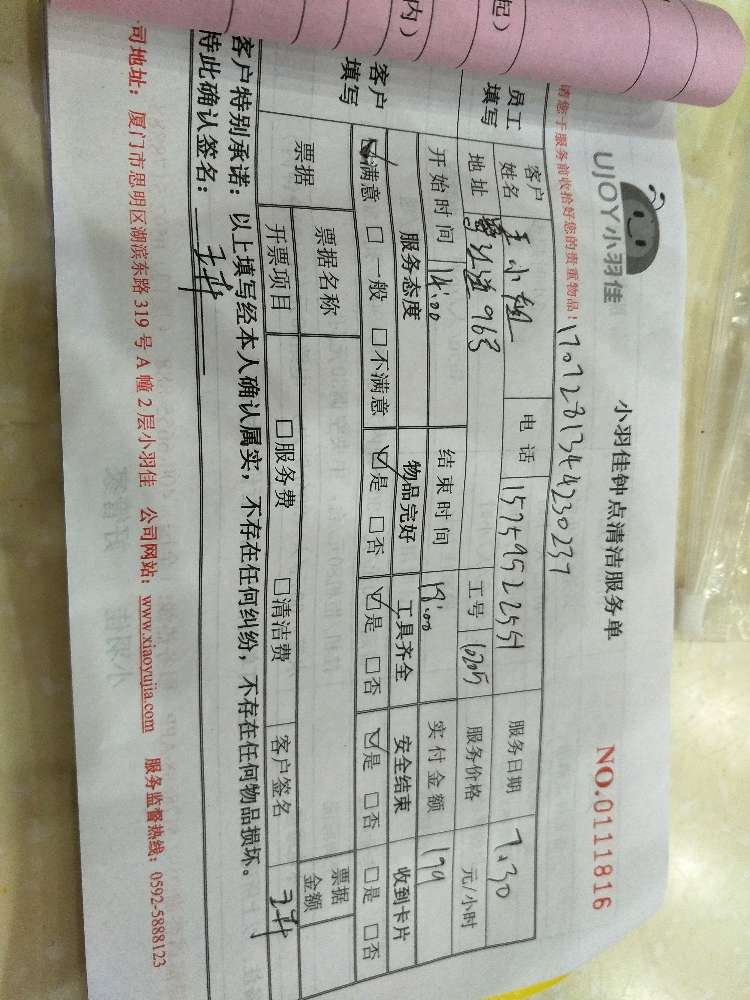 起)
内)
请您于服务前收拾好您的贵重物品!
UJOY小羽佳
小羽佳钟点清洁服务单
NO.0111816
17072813444230237
员工填写
客户姓名 王小姐 电话 15759522551 服务日期 7.30
地址 鹭江道963 工号 10205 服务价格 元/小时
开始时间 14:00 结束时间 18:00 实付金额 179
客户填写
服务态度 物品完好 工具齐全 安全结束 收到卡片
☑满意 □一般 □不满意 ☑是 □否 ☑是 □否 ☑是 □否 □是 □否
票据 票据名称 票据金额
开票项目 □服务费 □清洁费 客户签名
客户特别承诺:以上填写经本人确认属实,不存在任何纠纷,不存在任何物品损坏。
特此确认签名:
司地址:厦门市思明区湖滨东路319号A幢2层小羽佳 公司网站:www.xiaoyujia.com 服务监督热线:0592-5888123